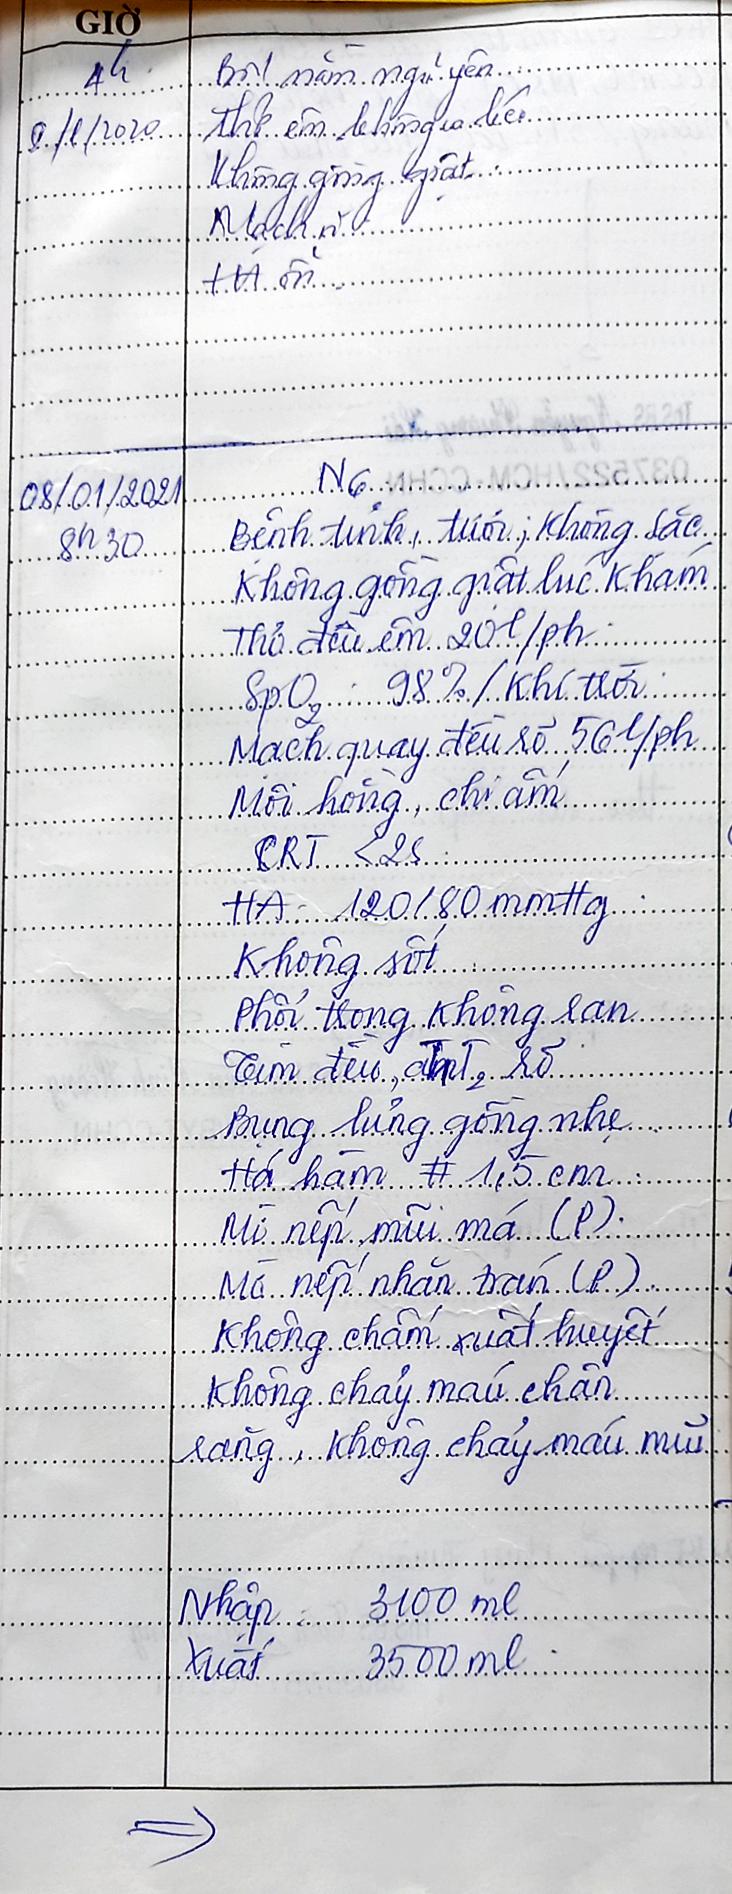 GIỜ
4h
Bn nằm ngủ yên
8/1/2020 Thở êm không co kéo
Không gồng giật
Mạch rõ
HA ổn
08/01/2021 N6
8h30 Bệnh tỉnh, tươi, không sặc
Không gồng giật lúc khám
Thở đều êm 20l/ph
SpO2 : 98% / khí trời
Mạch quay đều rõ 56l/ph
Môi hồng, chi ấm
CRT <2s
HA 120/80 mmHg
Không sốt
Phổi trong không ran
Tim đều, T1T2 rõ
Bụng lưng gồng nhẹ
Há hàm # 1,5 cm
Mờ nếp mũi má (P).
Mờ nếp nhăn trán (P).
Không chấm xuất huyết
Không chảy máu chân
răng, không chảy máu mũi
Nhập : 3100 ml
Xuất 3500 ml